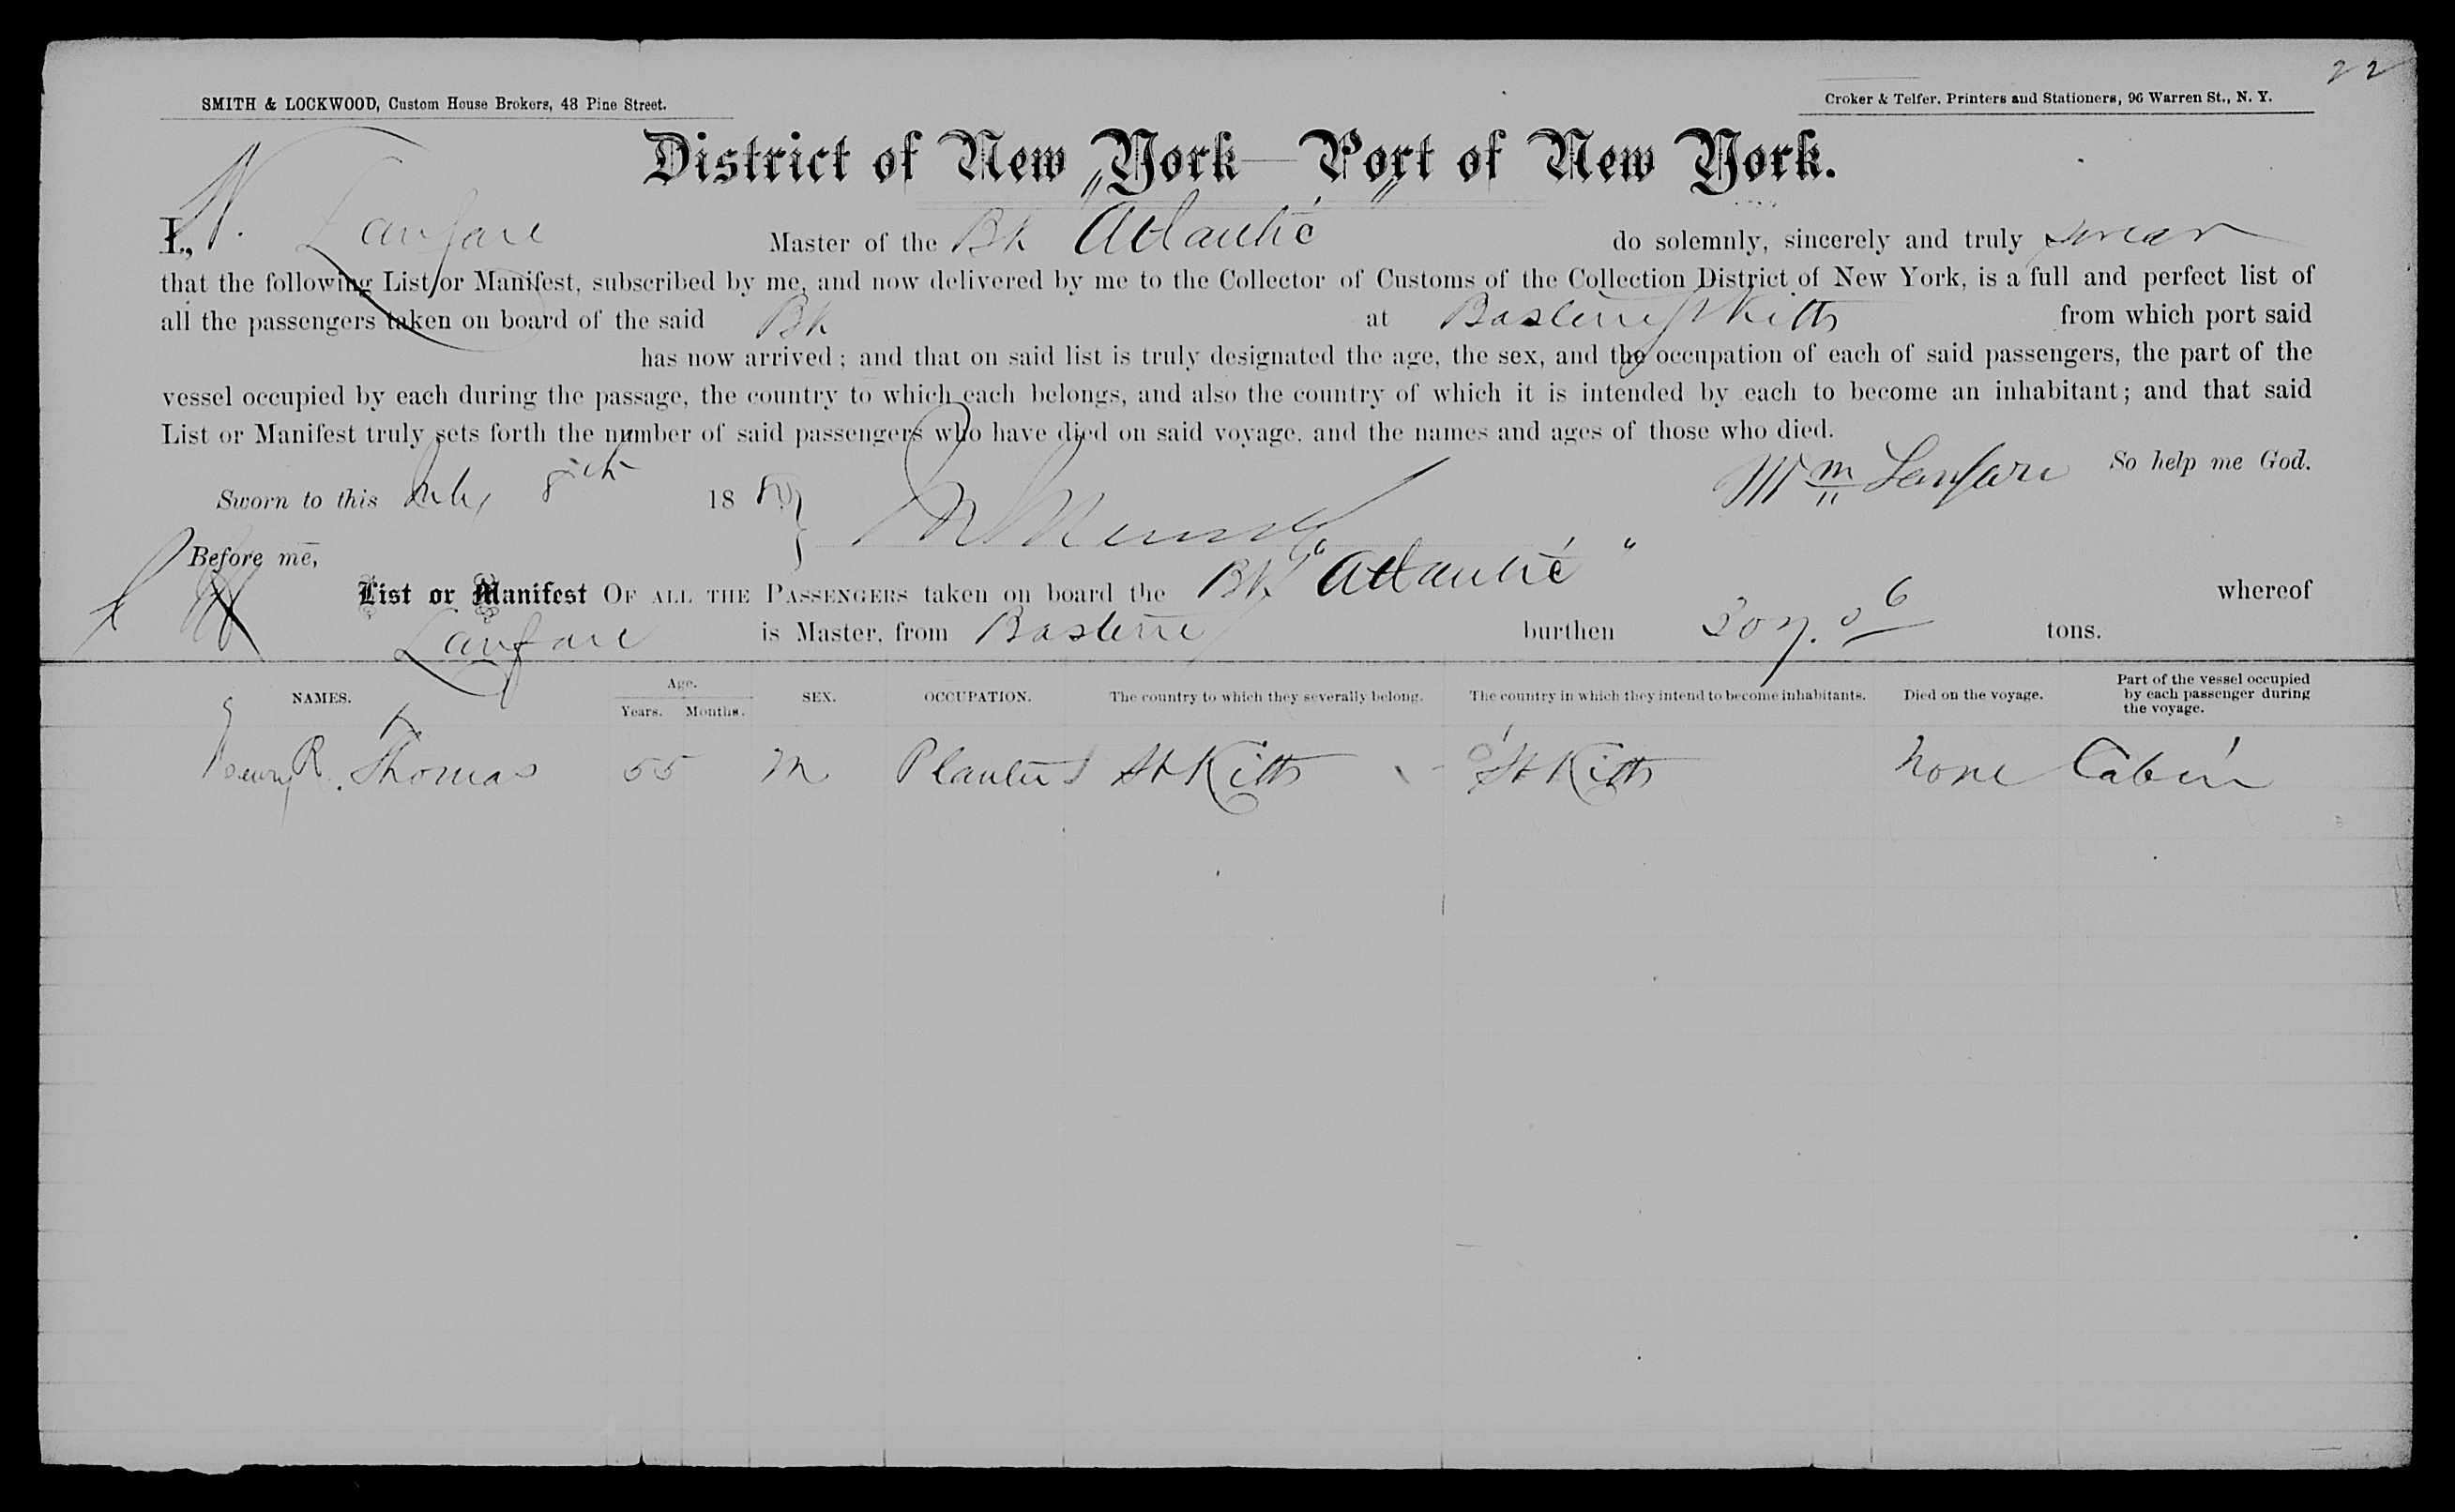 22
SMITH & LOCKWOOD, Custom House Brokers, 48 Pine Street.
Croker & Telfer, Printers and Stationers, 96 Warren St., N. Y.
District of New York—Port of New York.
I, W. Lanfare Master of the Bk "Atlantic" do solemnly, sincerely and truly swear
that the following List or Manifest, subscribed by me, and now delivered by me to the Collector of Customs of the Collection District of New York, is a full and perfect list of
all the passengers taken on board of the said Bk at Basterre St Kitts from which port said
has now arrived; and that on said list is truly designated the age, the sex, and the occupation of each of said passengers, the part of the
vessel occupied by each during the passage, the country to which each belongs, and also the country of which it is intended by each to become an inhabitant; and that said
List or Manifest truly sets forth the number of said passengers who have died on said voyage, and the names and ages of those who died.
Wm Lanfare So help me God.
Sworn to this July 8th 18
Before me,
List or Manifest OF ALL THE PASSENGERS taken on board the Bk "Atlantic" whereof
Lanfare is Master, from Basterre burthen 307.06 tons.
NAMES. Age. Years. Months. SEX. OCCUPATION. The country to which they severally belong. The country in which they intend to become inhabitants. Died on the voyage. Part of the vessel occupied by each passenger during the voyage.
Henry R. Thomas 55 M Planter St Kitts St Kitts None Cabin